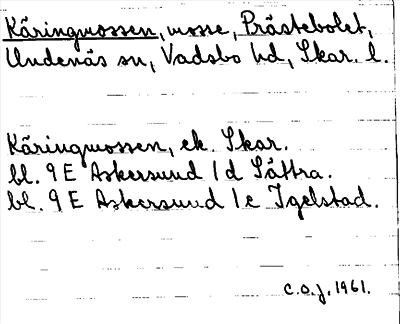 Käringmossen, mosse, Prästebolet,
Undenäs sn, Vadsbo hd, Skar. l.
Käringmossen, ek. Skar.
bl. 9 E Askersund 1 d Sätra.
bl. 9 E Askersund 1 e Igelstad.
C.O.J. 1961.